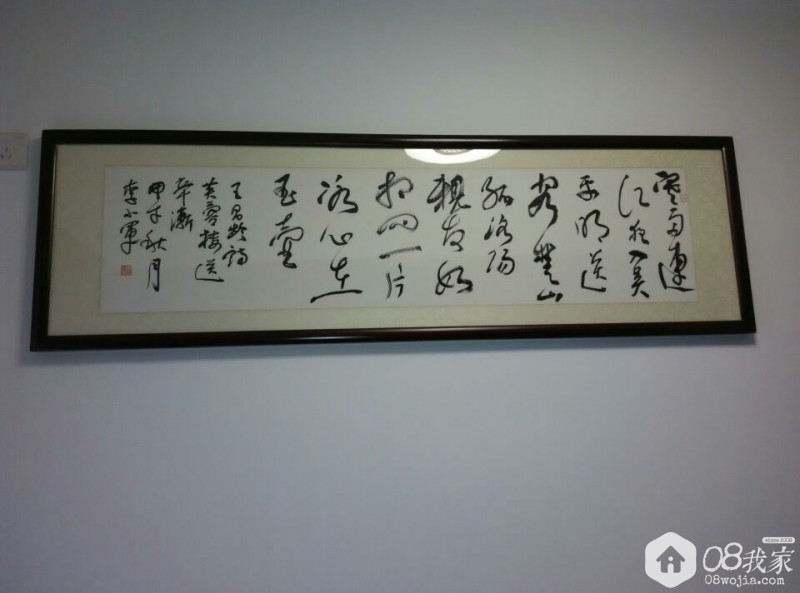 寒雨連
江夜入吴
平明送
客楚山
孤洛陽
親友如
相问一片
冰心在
玉壶
王昌龄詩
芙蓉楼送
辛漸
甲午秋月
李小軍
08我家
08wojia.com